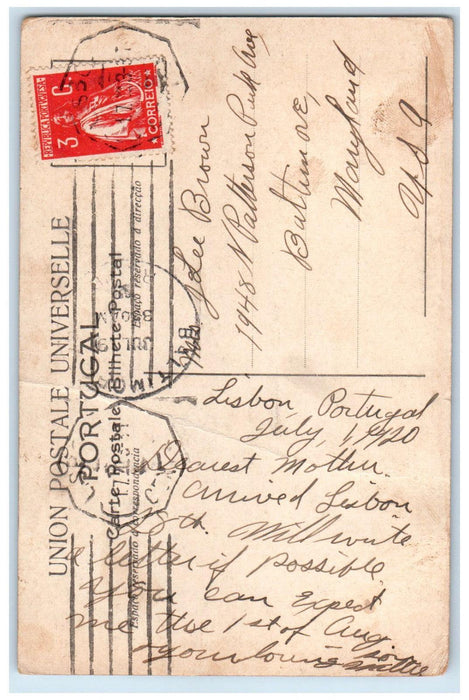 UNION POSTALE UNIVERSELLE
PORTUGAL
Carte Postale Bilhete Postal
Espaço reservado á correspondencia
Espaço reservado á direcção
REPUBLICA PORTUGUESA
3 C.
CORREIO
Lee Brown
1948 N Patterson Park Ave
Baltimore,
Maryland
U S A
Lisbon, Portugal
July, 1, 1920
Dearest Mother
arrived Lisbon
Will write
a letter if possible
You can expect
me the 1st of Aug
your loving son